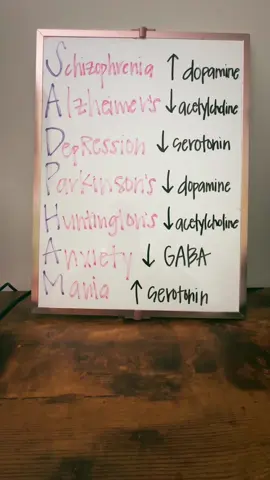 Schizophrenia ↑ dopamine
Alzheimer's ↓ acetylcholine
Depression ↓ serotonin
Parkinson's ↓ dopamine
Huntington's ↓ acetylcholine
Anxiety ↓ GABA
Mania ↑ serotonin